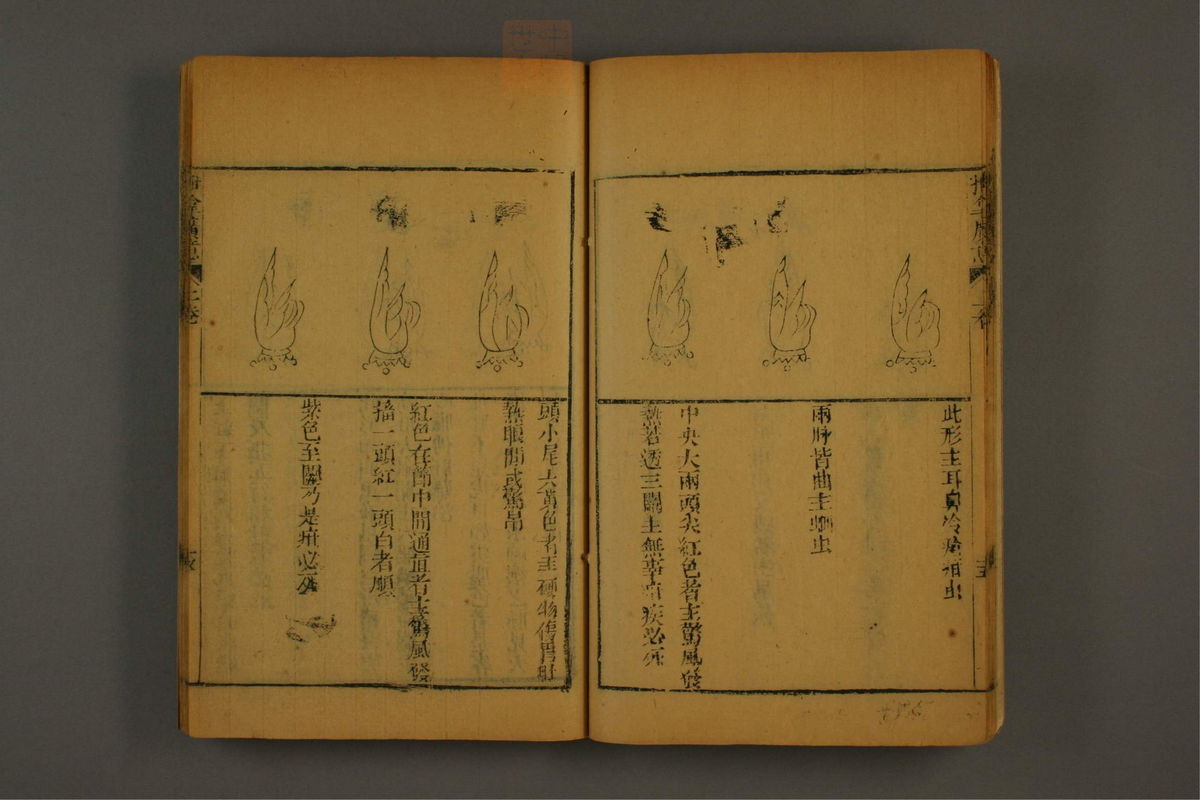 此形主耳鼻冷疳蛔虫
兩脉皆曲主蛔虫
中央大兩頭尖紅色者主驚風發
熱若透三關主無辜疳疾必死
頭小尾大黃色者主硬物傷胃肚
熱眼閉或驚吊
紅色在節中間通直者主驚風發
搐一頭紅一頭白者
紫色至關乃是疳必死